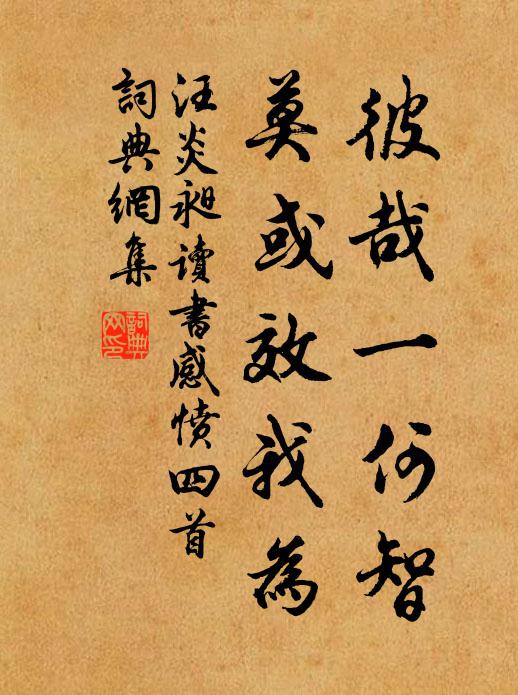 彼哉一何智
莫或效我為
汪炎昶讀書感憤四首
詞典網集
詞典
网印